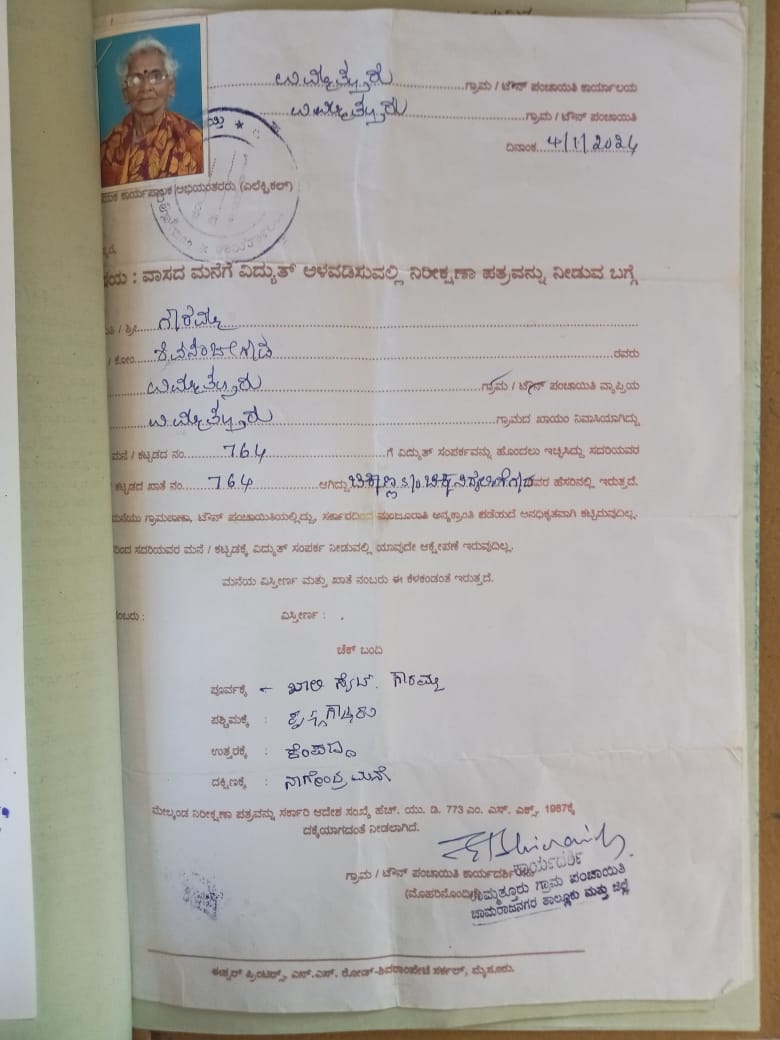 ಉಮ್ಮತ್ತೂರು ಗ್ರಾಮ / ಟೌನ್ ಪಂಚಾಯಿತಿ ಕಾರ್ಯಾಲಯ
ಉಮ್ಮತ್ತೂರು ಗ್ರಾಮ / ಟೌನ್ ಪಂಚಾಯಿತಿ
ದಿನಾಂಕ 4/1/2024
ಕಾರ್ಯಪಾಲಕ ಅಭಿಯಂತರರು (ಎಲೆಕ್ಟ್ರಿಕಲ್)
ವಾಸದ ಮನೆಗೆ ವಿದ್ಯುತ್ ಅಳವಡಿಸುವಲ್ಲಿ ನಿರೀಕ್ಷಣಾ ಪತ್ರವನ್ನು ನೀಡುವ ಬಗ್ಗೆ
/ ಶ್ರೀ. ಗೌರಮ್ಮ
/ ಕೋಂ. ರವರು
ಉಮ್ಮತ್ತೂರು ಗ್ರಾಮ / ಟೌನ್ ಪಂಚಾಯಿತಿ ವ್ಯಾಪ್ತಿಯ
ಉಮ್ಮತ್ತೂರು ಗ್ರಾಮದ ಖಾಯಂ ನಿವಾಸಿಯಾಗಿದ್ದು
ಮನೆ / ಕಟ್ಟಡದ ನಂ. 764 ಗೆ ವಿದ್ಯುತ್ ಸಂಪರ್ಕವನ್ನು ಹೊಂದಲು ಇಚ್ಛಿಸಿದ್ದು ಸದರಿಯವರ
ಕಟ್ಟಡದ ಖಾತೆ ನಂ. 764 ಆಗಿದ್ದು ರವರ ಹೆಸರಿನಲ್ಲಿ ಇರುತ್ತದೆ.
ಮನೆಯು ಗ್ರಾಮಠಾಣಾ, ಟೌನ್ ಪಂಚಾಯಿತಿಯಲ್ಲಿದ್ದು, ಸರ್ಕಾರದಿಂದ ಮಂಜೂರಾತಿ ಅನ್ಯಕ್ರಾಂತಿ ಪಡೆಯದೆ ಅನಧಿಕೃತವಾಗಿ ಕಟ್ಟಿರುವುದಿಲ್ಲ.
ಸದರಿಯವರ ಮನೆ / ಕಟ್ಟಡಕ್ಕೆ ವಿದ್ಯುತ್ ಸಂಪರ್ಕ ನೀಡುವಲ್ಲಿ ಯಾವುದೇ ಆಕ್ಷೇಪಣೆ ಇರುವುದಿಲ್ಲ.
ಮನೆಯ ವಿಸ್ತೀರ್ಣ ಮತ್ತು ಖಾತೆ ನಂಬರು ಈ ಕೆಳಕಂಡಂತೆ ಇರುತ್ತದೆ.
ನಂಬರು : ವಿಸ್ತೀರ್ಣ :
ಚೆಕ್ ಬಂದಿ
ಪೂರ್ವಕ್ಕೆ ಖಾಲಿ ಸೈಟ್. ಗೌರಮ್ಮ
ಪಶ್ಚಿಮಕ್ಕೆ :
ಉತ್ತರಕ್ಕೆ :
ದಕ್ಷಿಣಕ್ಕೆ : ನಾಗೇಂದ್ರ ಮನೆ
ಮೇಲ್ಕಂಡ ನಿರೀಕ್ಷಣಾ ಪತ್ರವನ್ನು ಸರ್ಕಾರಿ ಆದೇಶ ಸಂಖ್ಯೆ ಹೆಚ್. ಯು. ಡಿ. 773 ಎಂ. ಎಸ್. ಎಕ್ಸ್. 1987ಕ್ಕೆ
ದಕ್ಕೆಯಾಗದಂತೆ ನೀಡಲಾಗಿದೆ.
ಕಾರ್ಯದರ್ಶಿ
ಗ್ರಾಮ / ಟೌನ್ ಪಂಚಾಯಿತಿ ಕಾರ್ಯದರ್ಶಿ
ಉಮ್ಮತ್ತೂರು ಗ್ರಾಮ ಪಂಚಾಯಿತಿ
ಚಾಮರಾಜನಗರ ತಾಲ್ಲೂಕು ಮತ್ತು ಜಿಲ್ಲೆ
ಈಶ್ವರ್ ಪ್ರಿಂಟರ್ಸ್, ಎನ್.ಎಸ್. ರೋಡ್-ಶಿವರಾಂಪೇಟೆ ಸರ್ಕಲ್, ಮೈಸೂರು.